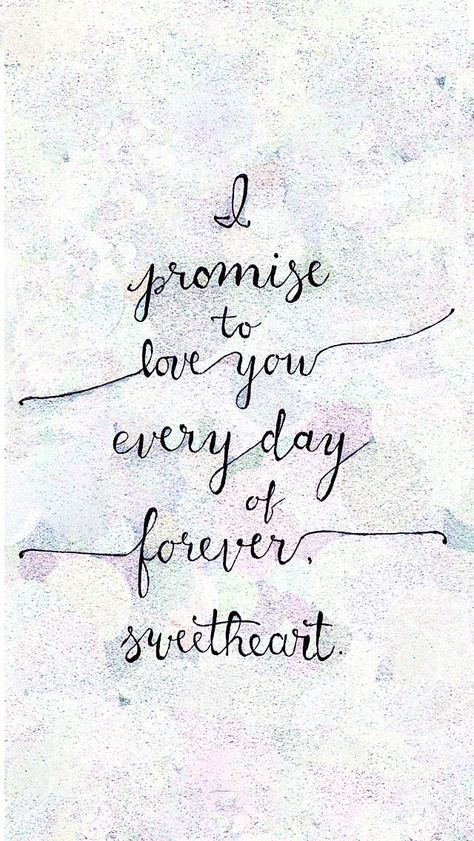 I
promise
to
love you
every day
of
forever,
sweetheart.